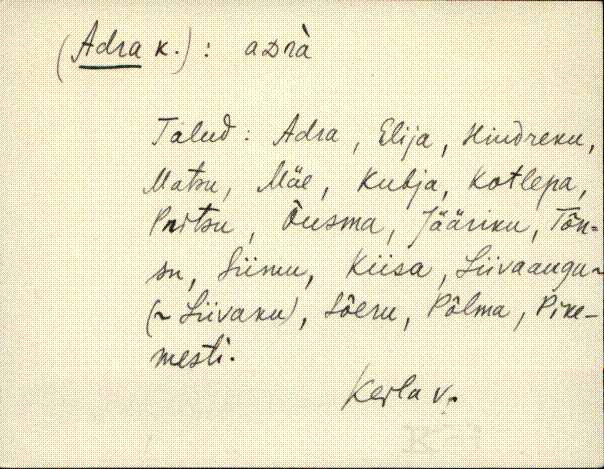 (Adra k.): aDrà
Talud: Adra, Elija, Hindreku,
Matsu, Mäe, Kubja, Kotlepa,
Pritsu, Õusma, Jääriku, Tõn-
su, Siimu, Kiisa, Liivaaugu ~
(~ Liivaku), Sõeru, Põlma, Pike-
mesti.
Kerla v.